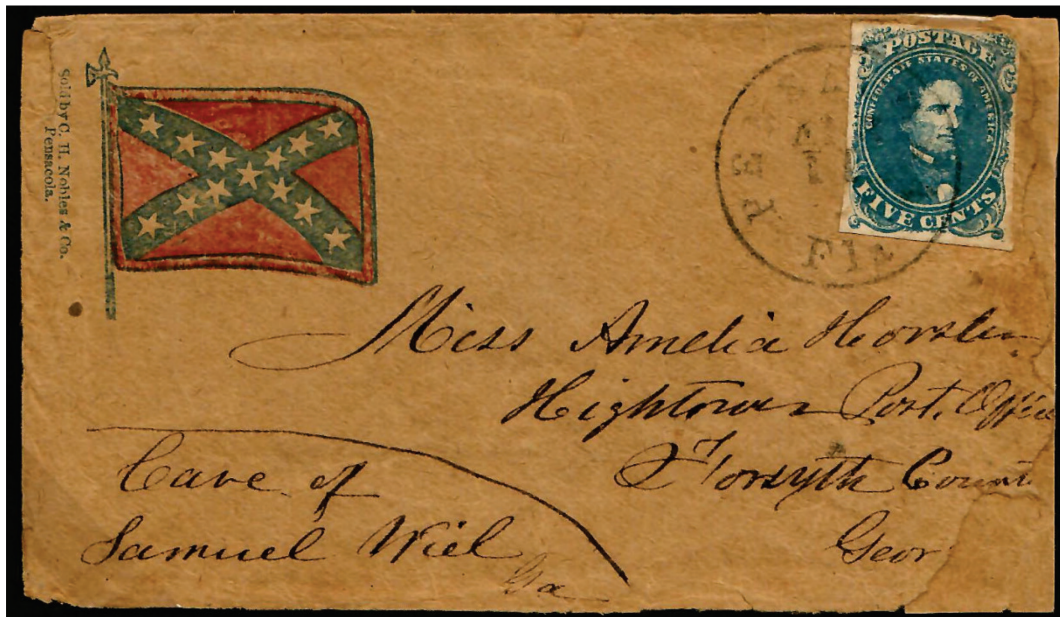 Sold by C. H. Nobles & Co.
Pensacola.
POSTAGE
CONFEDERATE STATES OF AMERICA
FIVE CENTS
Fla
Miss Amelia
Hightower Post. Office
Forsyth
Geor
Care of
Samuel Wiel
Ga